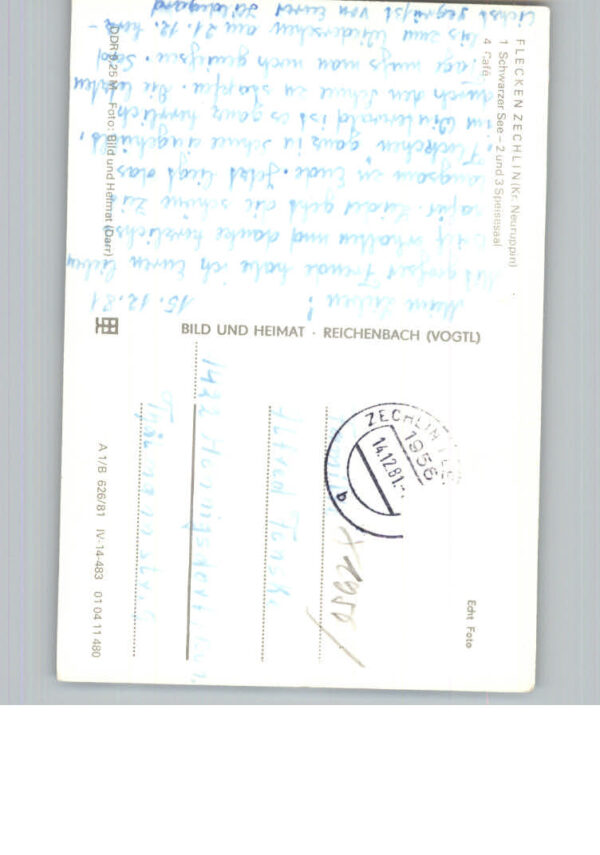 FLECKEN ZECHLIN (Kr. Neuruppin)
1 Schwarzer See – 2 und 3 Speisesaal
4 Café
Meine Lieben! 15.12.81
Mit grosser Freude habe ich Euren lieben
Brief erhalten und danke herzlichst
dafür. Leider geht die schöne Zeit
langsam zu Ende. Jetzt liegt das
Fleckchen ganz in Schnee eingehüllt.
im Winterwald ist es ganz herrlich
durch den Schnee zu stapfen. Die letzten
Tage muss man noch geniessen. Seid
bis zum Wiedersehen am 21.12. herz-
lichst gegrüsst von Eurer Hildegard
DDR 0,25 M – Foto: Bild und Heimat (Darr)
BILD UND HEIMAT · REICHENBACH (VOGTL)
ZECHLIN
1956
14.12.81
b
Familie
Alfred
1422 Hennigsdorf
1956
Echt Foto
A 1/B 626/81 IV-14-483 01 04 11 480